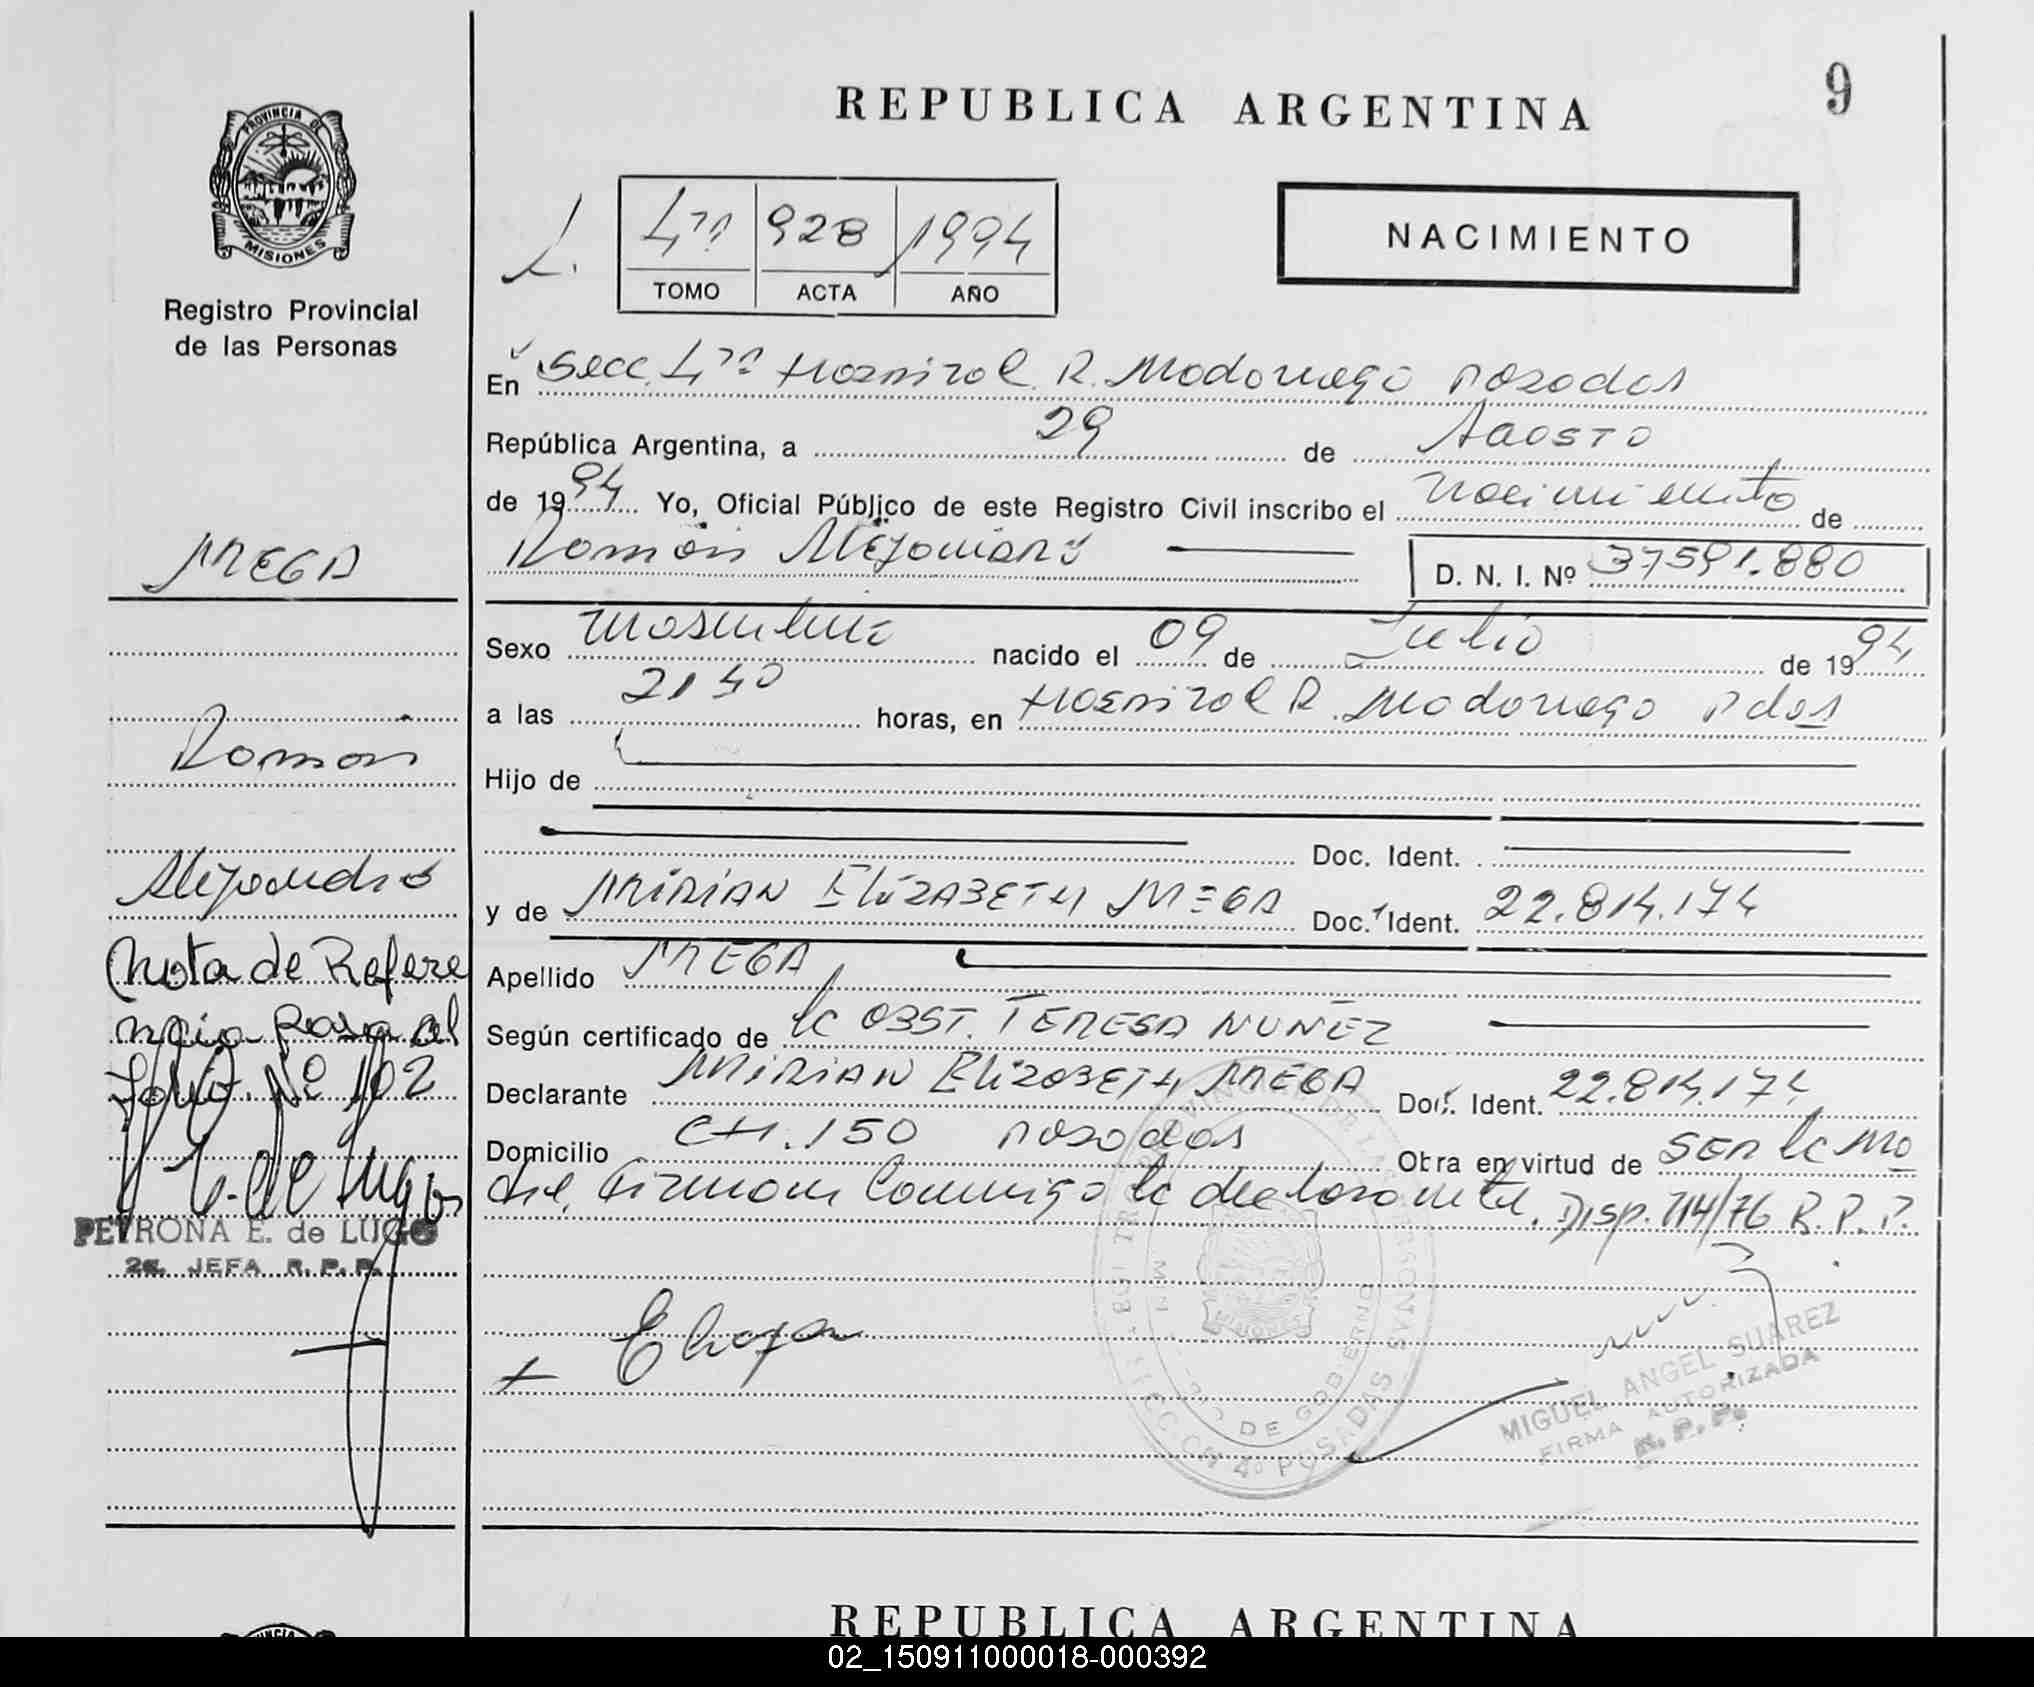 REPUBLICA ARGENTINA
9
PROVINCIA DE
MISIONES
Registro Provincial
de las Personas
L. 4ta 928 1994
TOMO ACTA AÑO
NACIMIENTO
En Secc. 4ta Hospital R. Madariaga Posadas
República Argentina, a 29 de Agosto
de 1994 Yo, Oficial Público de este Registro Civil inscribo el Nacimiento de
Ramón Alejandro D. N. I. Nº 37591.880
MEGA
Sexo Masculino nacido el 09 de Julio de 1994
a las 21 40 horas, en Hospital R. Madariaga Pdas
Ramón
Hijo de
Doc. Ident.
Alejandro
y de MIRIAN ELIZABETH MEGA Doc. Ident. 22.814.174
Nota de Refere
Apellido MEGA
ncia pasa al
Según certificado de la OBST. TERESA NUÑEZ
Folio Nº 102
Declarante MIRIAN ELIZABETH MEGA Doc. Ident. 22.814.174
Domicilio CH. 150 Posadas Obra en virtud de SER la MA
dre, Firmam Conmigo la declarante. Disp. 714/76 R. P. P.
E. de Lugo
PETRONA E. de LUGO
2a. JEFA R. P. P.
MISIONES
DE GOBIERNO
SECCION 4º POSADAS
MIGUEL ANGEL SUAREZ
FIRMA AUTORIZADA
R. P. P.
REPUBLICA ARGENTINA
02_150911000018-000392